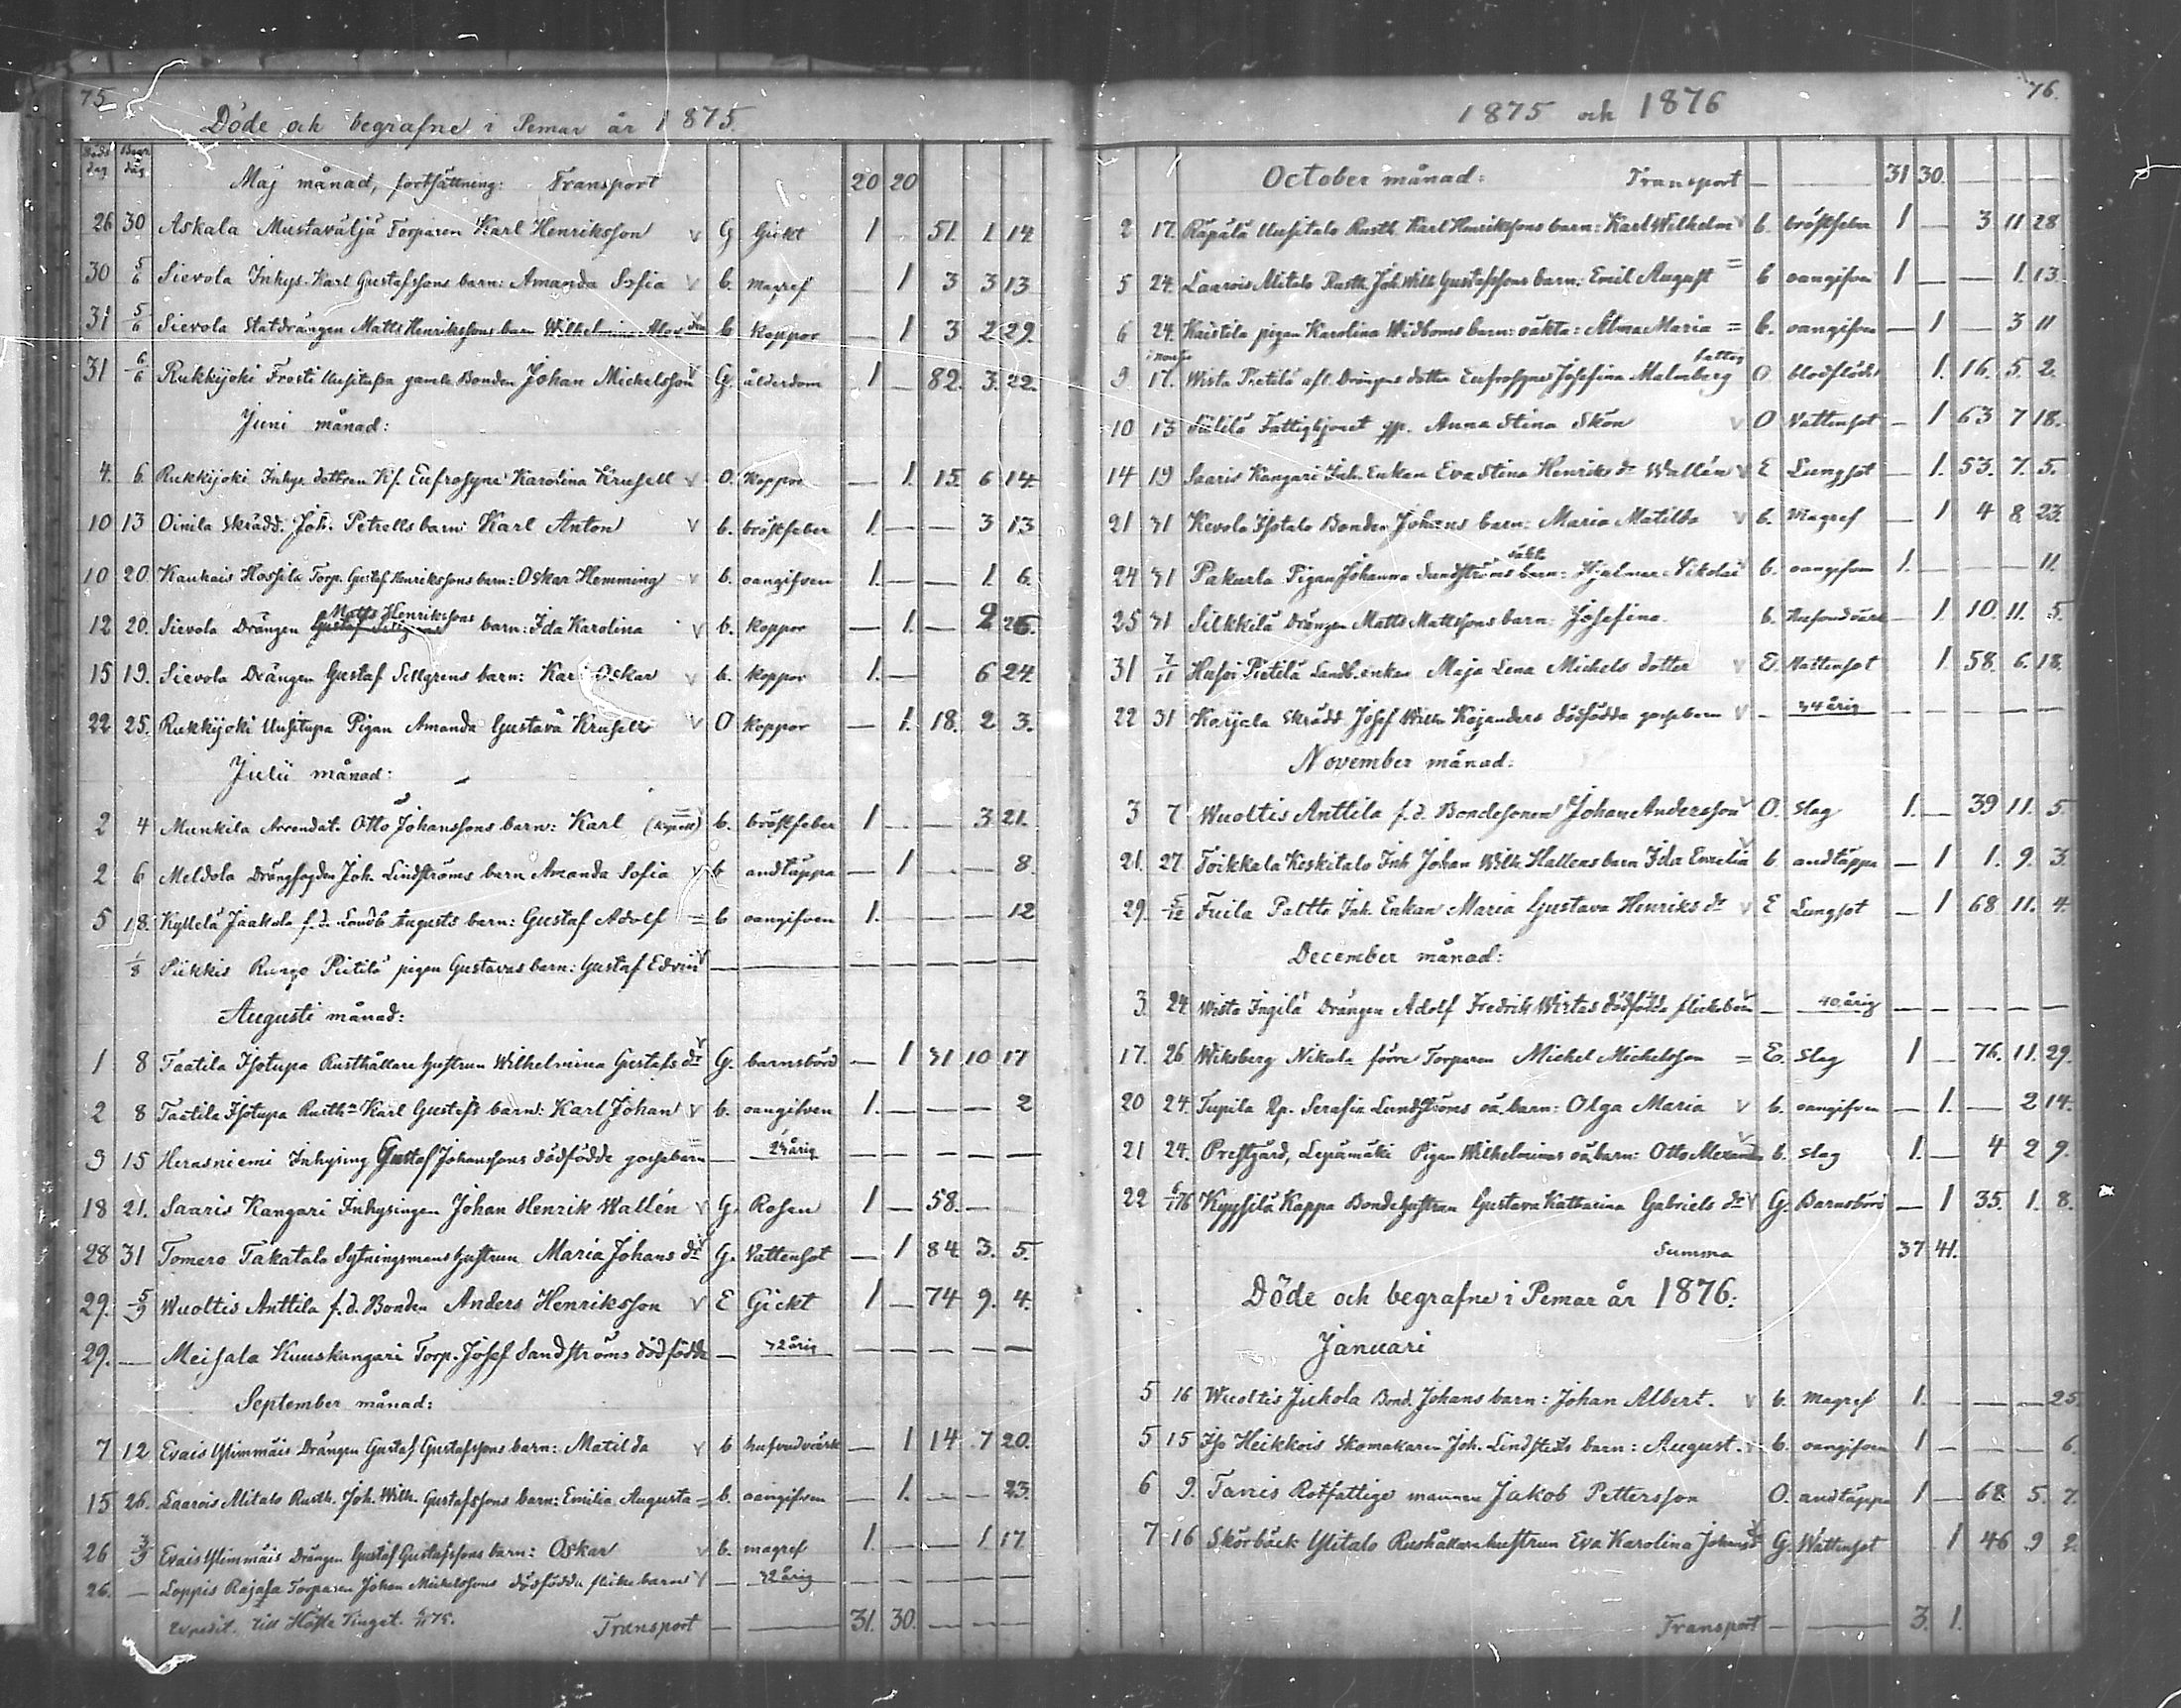 75.
Döde och begrafne i Pemar år 1875.
Döds dag Begr. dag
Maj månad, fortsättning: Transport 20 20
26 30 Askala Mustaväljä Torparen Karl Henriksson v G Gickt 1 — 51. 1. 14.
30 5/6 Sievola Inhys. Karl Gustafssons barn: Amanda Sofia v b. magref — 1 3 3 13
31 5/6 Sievola Statdrängen Matts Henrikssons barn Wilhelmina v b Koppor — 1 3 2 29.
31 6/6 Rukkijoki Frosti Uusitupa gamle Bonden Johan Michelsson v G. ålderdom 1 — 82. 3. 22.
Juni månad:
4. 6. Rukkijoki Inhys. dottren Eufrosyne Karolina Krusell v O. Koppor — 1. 15. 6 14.
10 13 Oinila Skrädd. Joh. Petrells barn: Karl Anton v b. bröstfeber 1. — — 3 13
10 20 Kaukais Hossila Torp. Gustaf Henrikssons barn: Oskar Hemming v b. oangifven 1. — — 1. 6.
12 20. Sievola Drängen Matts Henrikssons barn: Ida Karolina v b. Koppor — 1. — 2 26.
15 19. Sievola Drängen Gustaf Sellgrens barn: Karl Oskar v b. Koppor 1. — 6 24.
22 25. Rukkijoki Uusitupa Pigan Amanda Gustava Krusell v O Koppor — 1. 18. 2 3.
Julii månad:
2 4 Munkila Arrendat. Otto Johanssons barn: Karl b. bröstfeber 1 — — 3 21.
2 6 Meldola Drängfogden Joh. Lindströms barn Amanda Sofia v b andtäppa — 1 — — 8.
5 18. Kyllelä Jaakola f.d. Landb. Augusts barn: Gustaf Adolf = b oangifven 1. — — — 12
1/8 Piikkis Rungo Pietilä pigan Gustavas barn: Gustaf Edvin v — — — — — — —
Augusti månad:
1 8 Taatila Isotupa Rusthållare hustrun Wilhelmina Gustafs dr v G. barnsbörd — 1 31 10 17
2 8 Taatila Isotupa Rusth. Karl Gustafs barn: Karl Johan v b. oangifven 1. — — — 2
3 15 Herasniemi Inhysing Gustaf Johanssons dödfödde gossebarn = — 24 årig — — — — —
18 21. Saaris Kangari Inhysingen Johan Henrik Wallén v G. Rosen 1 — 58. — —
28 31 Tomero Takatalo Sytningsmans hustrun Maria Johans dr v G. Vattensot — 1 84 3. 5.
29. 5/9 Wuoltis Anttila f.d. Bonden Anders Henriksson v E Gickt 1 — 74 9. 4.
29. — Meisala Kuuskangari Torp. Josef Sandströms dödfödde — 32 årig — — — — —
September månad:
7 12 Evais Ylimmäis Drängen Gustaf Gustafssons barn: Matilda v b hufvudvärk — 1 14 7 20.
15 26. Laarois Alitalo Rusth. Joh. Wilh. Gustafssons barn: Emilia Augusta = b. oangifven — 1. — — 23.
26 3/9 Evais Ylimmäis Drängen Gustaf Gustafssons barn: Oskar v b. magref 1. — — 1 17
26. — Loppis Rajasa Torparen Johan Michelssons dödfödda flickebarn v — 32 årig — — — — —
Transport — — 31. 30. — — —
76.
1875 och 1876
October månad: Transport — — 31 30. — — —
2 17. Räpälä Uusitalo Rusth. Karl Henrikssons barn: Karl Wilhelm v b. bröstfeber 1 — 3 11 28
5 24. Laarois Alitalo Rusth. Joh. Wilh. Gustafssons barn: Emil August = b oangifven 1 — — 1. 13.
6 24. Kaistila pigan Karolina Widboms barn: oäkta: Alma Maria = b. oangifven — 1 — 3 11
9 17. Wista Pietilä afl. Drängens dotter Eufrosyne Josefina Malmberg O. blodflöde 1. 16. 5. 2.
10 13 Fattighjonet gp. Anna Stina Skön v O Vattensot — 1 63 7 18.
14 19 Saaris Kangari Inh. Enkan Eva Stina Henriks dr Wallén v E Lungsot — 1. 53. 7. 5.
21 31 Kevola Isotalo Bonden Johans barn: Maria Matilda v b. Magref — 1 4 8 23.
24 31 Pakurla Pigan Johanna Sundströms oäkta barn: Hjalmar Nikolai v b. oangifven 1. — — — 11.
25 31 Silkkilä Drängen Matts Mattssons barn: Josefina b. Hufvudvärk — 1 10. 11. 5.
31 7/11 Husoi Pietilä Landb. enkan Maja Lena Michels dotter v E. Vattensot 1. 58. 6. 18.
22 31 Karjala Skrädd. Josef Wilh. Kojanders dödfödda gossebarn v — 34 årig — — — — —
November månad:
3 7 Wuoltis Anttila f.d. Bondesonen Johan Andersson v O. Slag 1. — 39 11. 5.
21. 27. Toikkala Keskitalo Inh. Johan Wilh. Hallens barn Ida Emelia v b andtäppa — 1 1. 9. 3.
29. 5/12 Fuila Paltta Inh. Enkan Maria Gustava Henriks dr v E Lungsot — 1 68 11. 4.
December månad:
3. 24. Wista Ingilä Drängen Adolf Fredrik Wirtas dödfödda flickebarn v — 40 årig — — — — —
17. 26 Wiksberg Nikula förre Torparen Michel Michelsson = E. Slag 1 — 76. 11. 29.
20 24. Tupila Qp. Serafia Lundströms oä. barn: Olga Maria v b. oangifven — 1. — 2 14.
21 24. Prestgård, Lepämäki Pigan Wilhelminas oä. barn: Otto Alexander v b. Slag 1. — 4 2 9.
22 6/1 76 Kyysilä Kappa Bondehustrun Gustava Katharina Gabriels dr v G. Barnsbörd — 1 35. 1. 8.
Summa 37 41.
Döde och begrafne i Pemar år 1876:
Januari
5 16 Wuoltis Juhola Bond. Johans barn: Johan Albert. v b. Magref 1. — — — 25.
5 15 Iso Heikkois Skomakaren Joh. Lindstedts barn: August. v b. oangifven 1 — — — 6.
6 9. Tanis Rotfattige mannen Jakob Pettersson O. andtäppa 1 — 68. 5. 7.
7 16 Skörbäck Ylitalo Rusthållarehustrun Eva Karolina Johansdr v G. Wattensot 1 46 9 2.
Transport — — 3. 1.